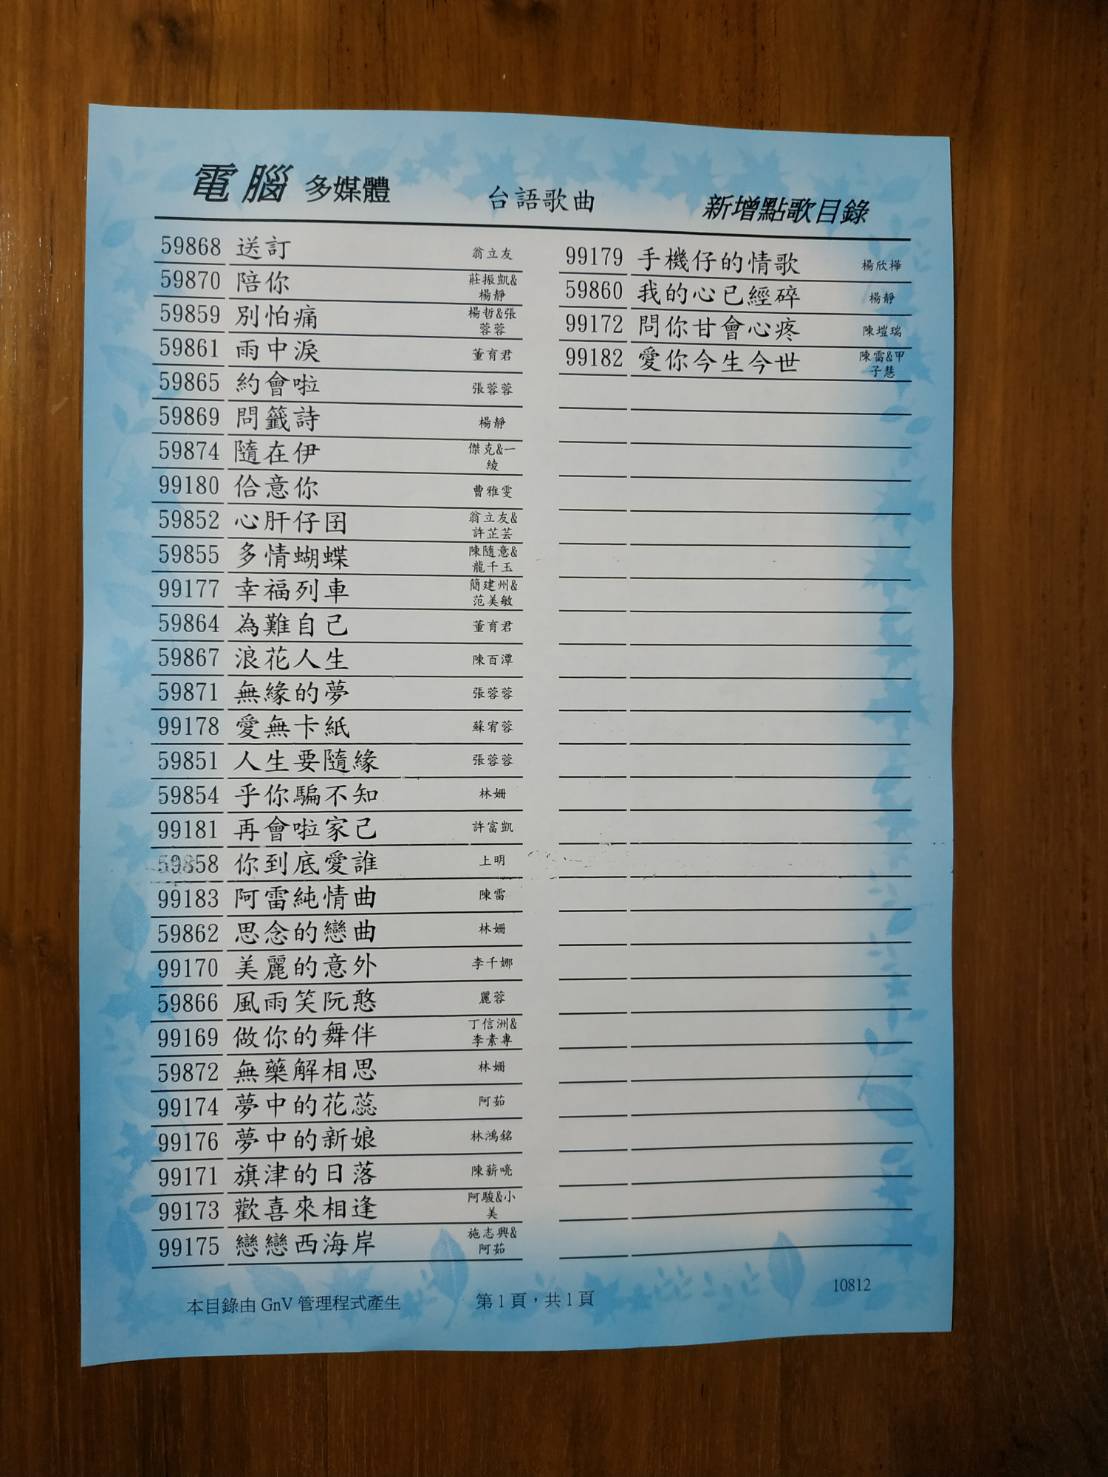 電腦 多媒體 台語歌曲 新增點歌目錄
59868 送訂 翁立友
59870 陪你 莊振凱&楊靜
59859 別怕痛 楊哲&張蓉蓉
59861 雨中淚 董育君
59865 約會啦 張蓉蓉
59869 問籤詩 楊靜
59874 隨在伊 傑克&一綾
99180 佮意你 曹雅雯
59852 心肝仔囝 翁立友&許芷芸
59855 多情蝴蝶 陳隨意&龍千玉
99177 幸福列車 簡建州&范美敏
59864 為難自己 董育君
59867 浪花人生 陳百潭
59871 無緣的夢 張蓉蓉
99178 愛無卡紙 蘇宥蓉
59851 人生要隨緣 張蓉蓉
59854 乎你騙不知 林姍
99181 再會啦家己 許富凱
59858 你到底愛誰 上明
99183 阿雷純情曲 陳雷
59862 思念的戀曲 林姍
99170 美麗的意外 李千娜
59866 風雨笑阮憨 麗蓉
99169 做你的舞伴 丁信洲&李素專
59872 無藥解相思 林姍
99174 夢中的花蕊 阿茹
99176 夢中的新娘 林鴻銘
99171 旗津的日落 陳薪喨
99173 歡喜來相逢 阿駿&小美
99175 戀戀西海岸 施志興&阿茹
99179 手機仔的情歌 楊欣樺
59860 我的心已經碎 楊靜
99172 問你甘會心疼 陳塏瑞
99182 愛你今生今世 陳雷&甲子慧
本目錄由 GnV 管理程式產生 第 1 頁,共 1 頁 10812